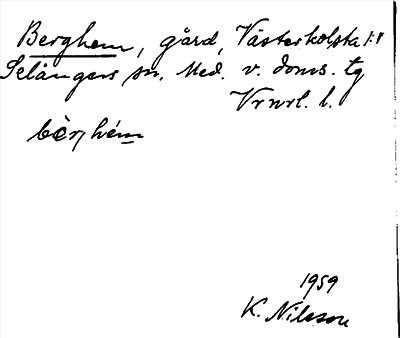 Berghem, gård, Västerkolsta 1:1
Selångers sn. Med. v. doms. tg
Vrwrl. l.
bèrhém
1959
K. Nilsson